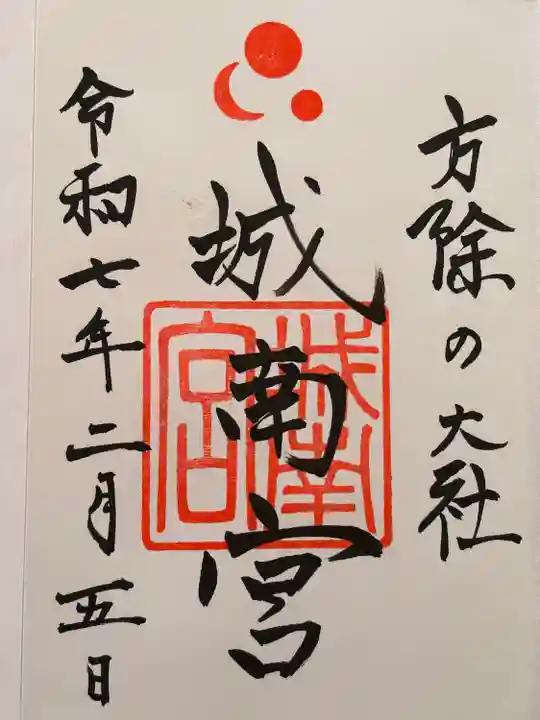 方除の大社
城南宮
城南宮
令和七年二月五日